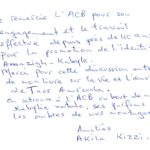 Je remercie l'ACB pour son
engagement et le travail
effectué depuis près de 40 ans
pour la promotion de l'identité
Amazigh-Kabyle.
Merci pour cette discussion autour
de mon livre sur la vie et l'œuvre
de Taos Amrouche.
On retrouve à l'ACB un bout de
Kabylie et les parfums
les ombres de nos montagnes
Amitiés
Akila Kizzi.